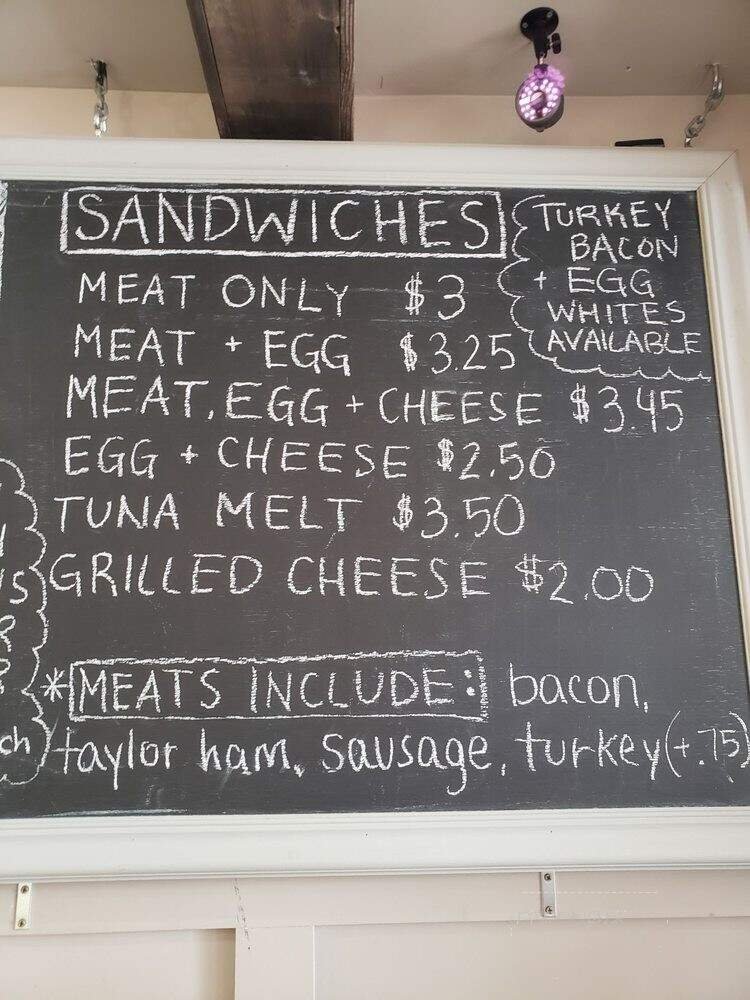 SANDWICHES
MEAT ONLY $3
MEAT + EGG $3.25
MEAT, EGG + CHEESE $3.45
EGG + CHEESE $2.50
TUNA MELT $3.50
GRILLED CHEESE $2.00
TURKEY
BACON
+ EGG
WHITES
AVAILABLE
*MEATS INCLUDE: bacon,
taylor ham, sausage, turkey(+.75)
ch